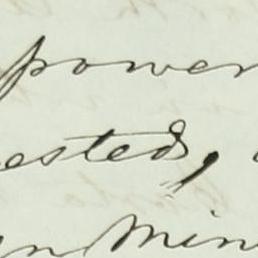 power
ested,
n Min